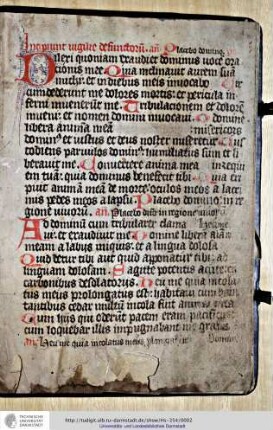 Incipiunt vigilie defunctorum. an. Placebo domino.
Dilexi quoniam exaudiet dominus voce ora
cionis mee Quia inclinavit aurem suã
michi: et in diebus meis invocabo Cir
cumdederunt me dolores mortis: et pericula in
ferni invenerũt me. Tribulacionem et dolorẽ
inveni: et nomen domini invocavi. O domine
libera animã meã misericors
dominus et iustus et deus noster miseretur Cus
todiens parvulos dominus humiliatus sum et li
beravit me Convertere anima mea in requiẽ
tuã: quia dominus benefecit tibi Quia eri
puit animã meã de morte: oculos meos a lacri
mis pedes meos a lapsu. Placebo domino: in re
gione vivorũ. an. Placebo dño in regione vivorũ
Ad dominũ cum tribularer clama
vi: et exaudivit me Domine libera añiã
meam a labiis iniquis: et a lingua dolosa
Quid detur tibi aut quid apponatur tibi: ad
linguam dolosam. Sagitte potentis acute: cũ
carbonibus desolatoriis. Heu me quia incola
tus meus prolongatus est: habitavi cum habi
tantibus cedar multũ incola fuit anima mea
Cum hiis qui oderũt pacem eram pacificus:
cum loquebar illis impugnabant me gratis
an. Heu me quia incolatus meus
http://tudigit.ulb.tu-darmstadt.de/show/Hs-314/0002
Universitäts- und Landesbibliothek Darmstadt
TECHNISCHE
UNIVERSITÄT
DARMSTADT